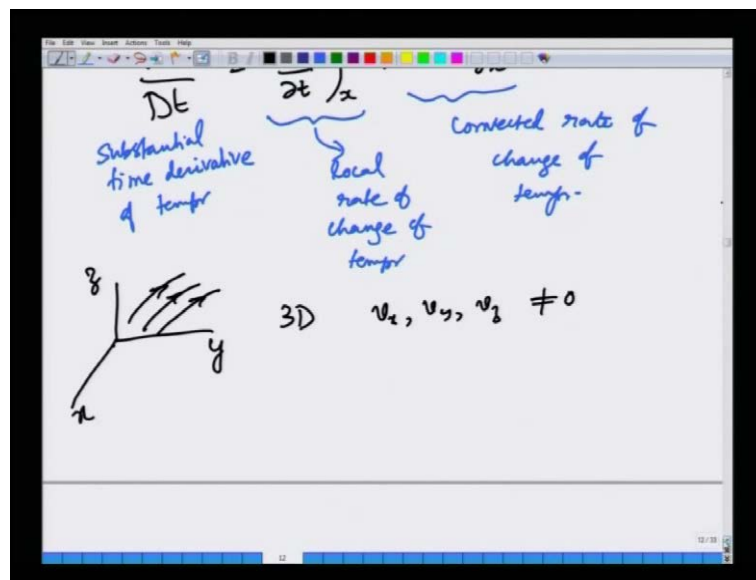 File Edit View Insert Actions Tools Help
Dt = ∂t )x
Substantial time derivative of tempr
Local rate of change of tempr
Convected rate of change of tempr.
z
y
x
3D vx, vy, vz ≠0
12
12/33